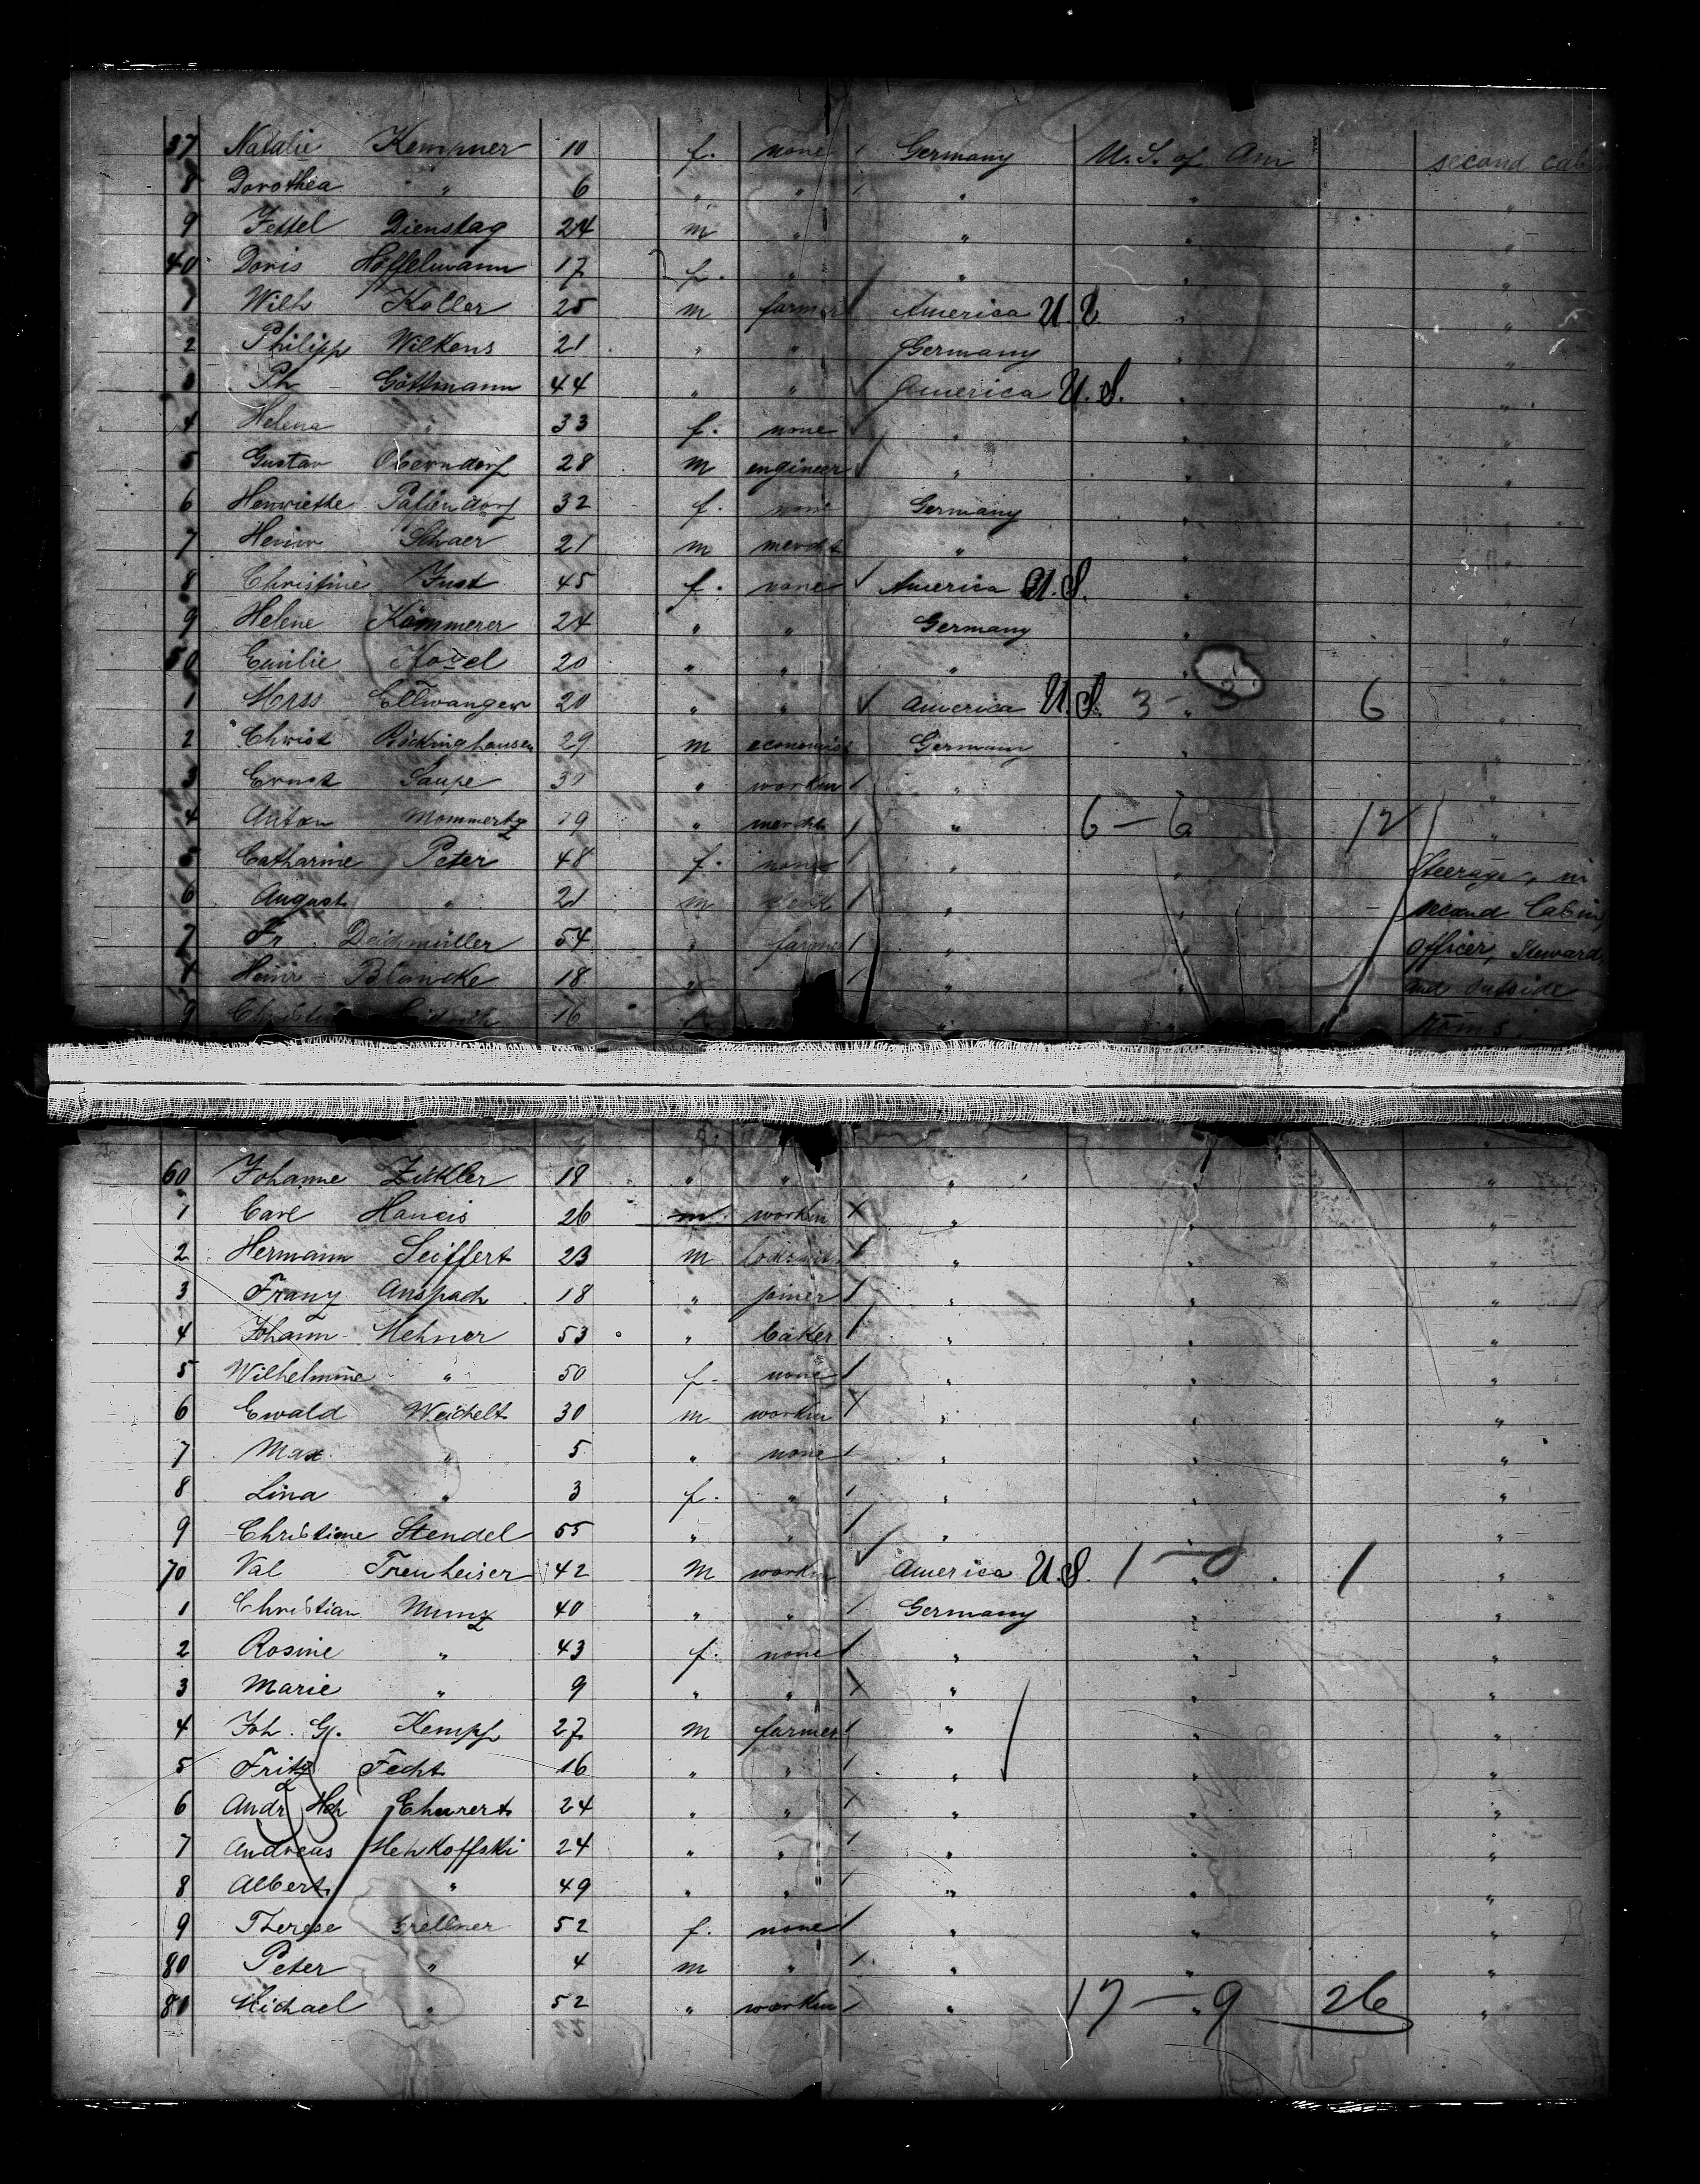 37 Natalie Kempner 10 f. none / Germany U. S. of Am second cab
8 Dorothea " 6 " " / " " "
9 Jettel Dienstag 24 m " " " "
40 Doris Höffelmann 17 f. " / " " "
1 Wilh Koller 25 m farmer / America U. S. " "
2 Philipp Wilkens 21 " " Germany " "
3 Ph Göttmann 44 " " ✓ America U. S. " "
4 Helena " 33 f. none ✓ " " "
5 Gustav Oberndorf 28 m engineer ✓ " " "
6 Henriette 32 f. none Germany " "
7 Heinr Schaer 21 m mercht " " "
8 Christine Just 45 f. none ✓ America U. S. " "
9 Helene Kömmerer 24 " " Germany " "
50 Emilie 20 " " " " "
1 Ellwanger 20 " " ✓ America U. S. 3 - 3 6 "
2 Christ Böckinghausen 29 m economist Germany " "
3 Ernst Saupe " workm / " " "
4 Anton Mommertz 19 " mercht / " 6 - 6 12 "
5 Catharine Peter 48 f. none / " " Steerage, in
6 August " 21 m / " " second Cabin,
7 Fr. Deichmüller 54 " farmer / " " officer, Steward,
8 Heinr Blancke 18 " / " " and outside
9 16 f " " rooms.
60 Johanne Zickler 18 " " " " "
1 Carl Hancis 26 m workm X " " "
2 Hermann Seiffert 23 m X " " "
3 Franz Anspach 18 " joiner / " " "
4 Johann Mehner 53 " baker / " " "
5 Wilhelmine " 50 f. none / " " "
6 Ewald Weichelt 30 m workm X " " "
7 Max " 5 " none / " " "
8 Lina " 3 f. " / " " "
9 Christiane Stendel 55 " " / " " "
70 Val Treuheiser 42 m workm ✓ America U. S. 1 - 0 1 "
1 Christian Munz 40 " " / Germany " "
2 Rosine " 43 f. none / " " "
3 Marie " 9 " " X " " "
4 Joh. G. Kempf 27 m farmer / " " "
5 Fritz Fecht 16 " " / " " "
6 Andr Hch 24 " " X " " "
7 Andreas Mehkoffski 24 " " / " " "
8 Albert " 49 " " / " " "
9 Therese Grellner 52 f. none / " " "
80 Peter " 4 m " / " " "
81 Michael " 52 " workm / " 17 - 9 26 "